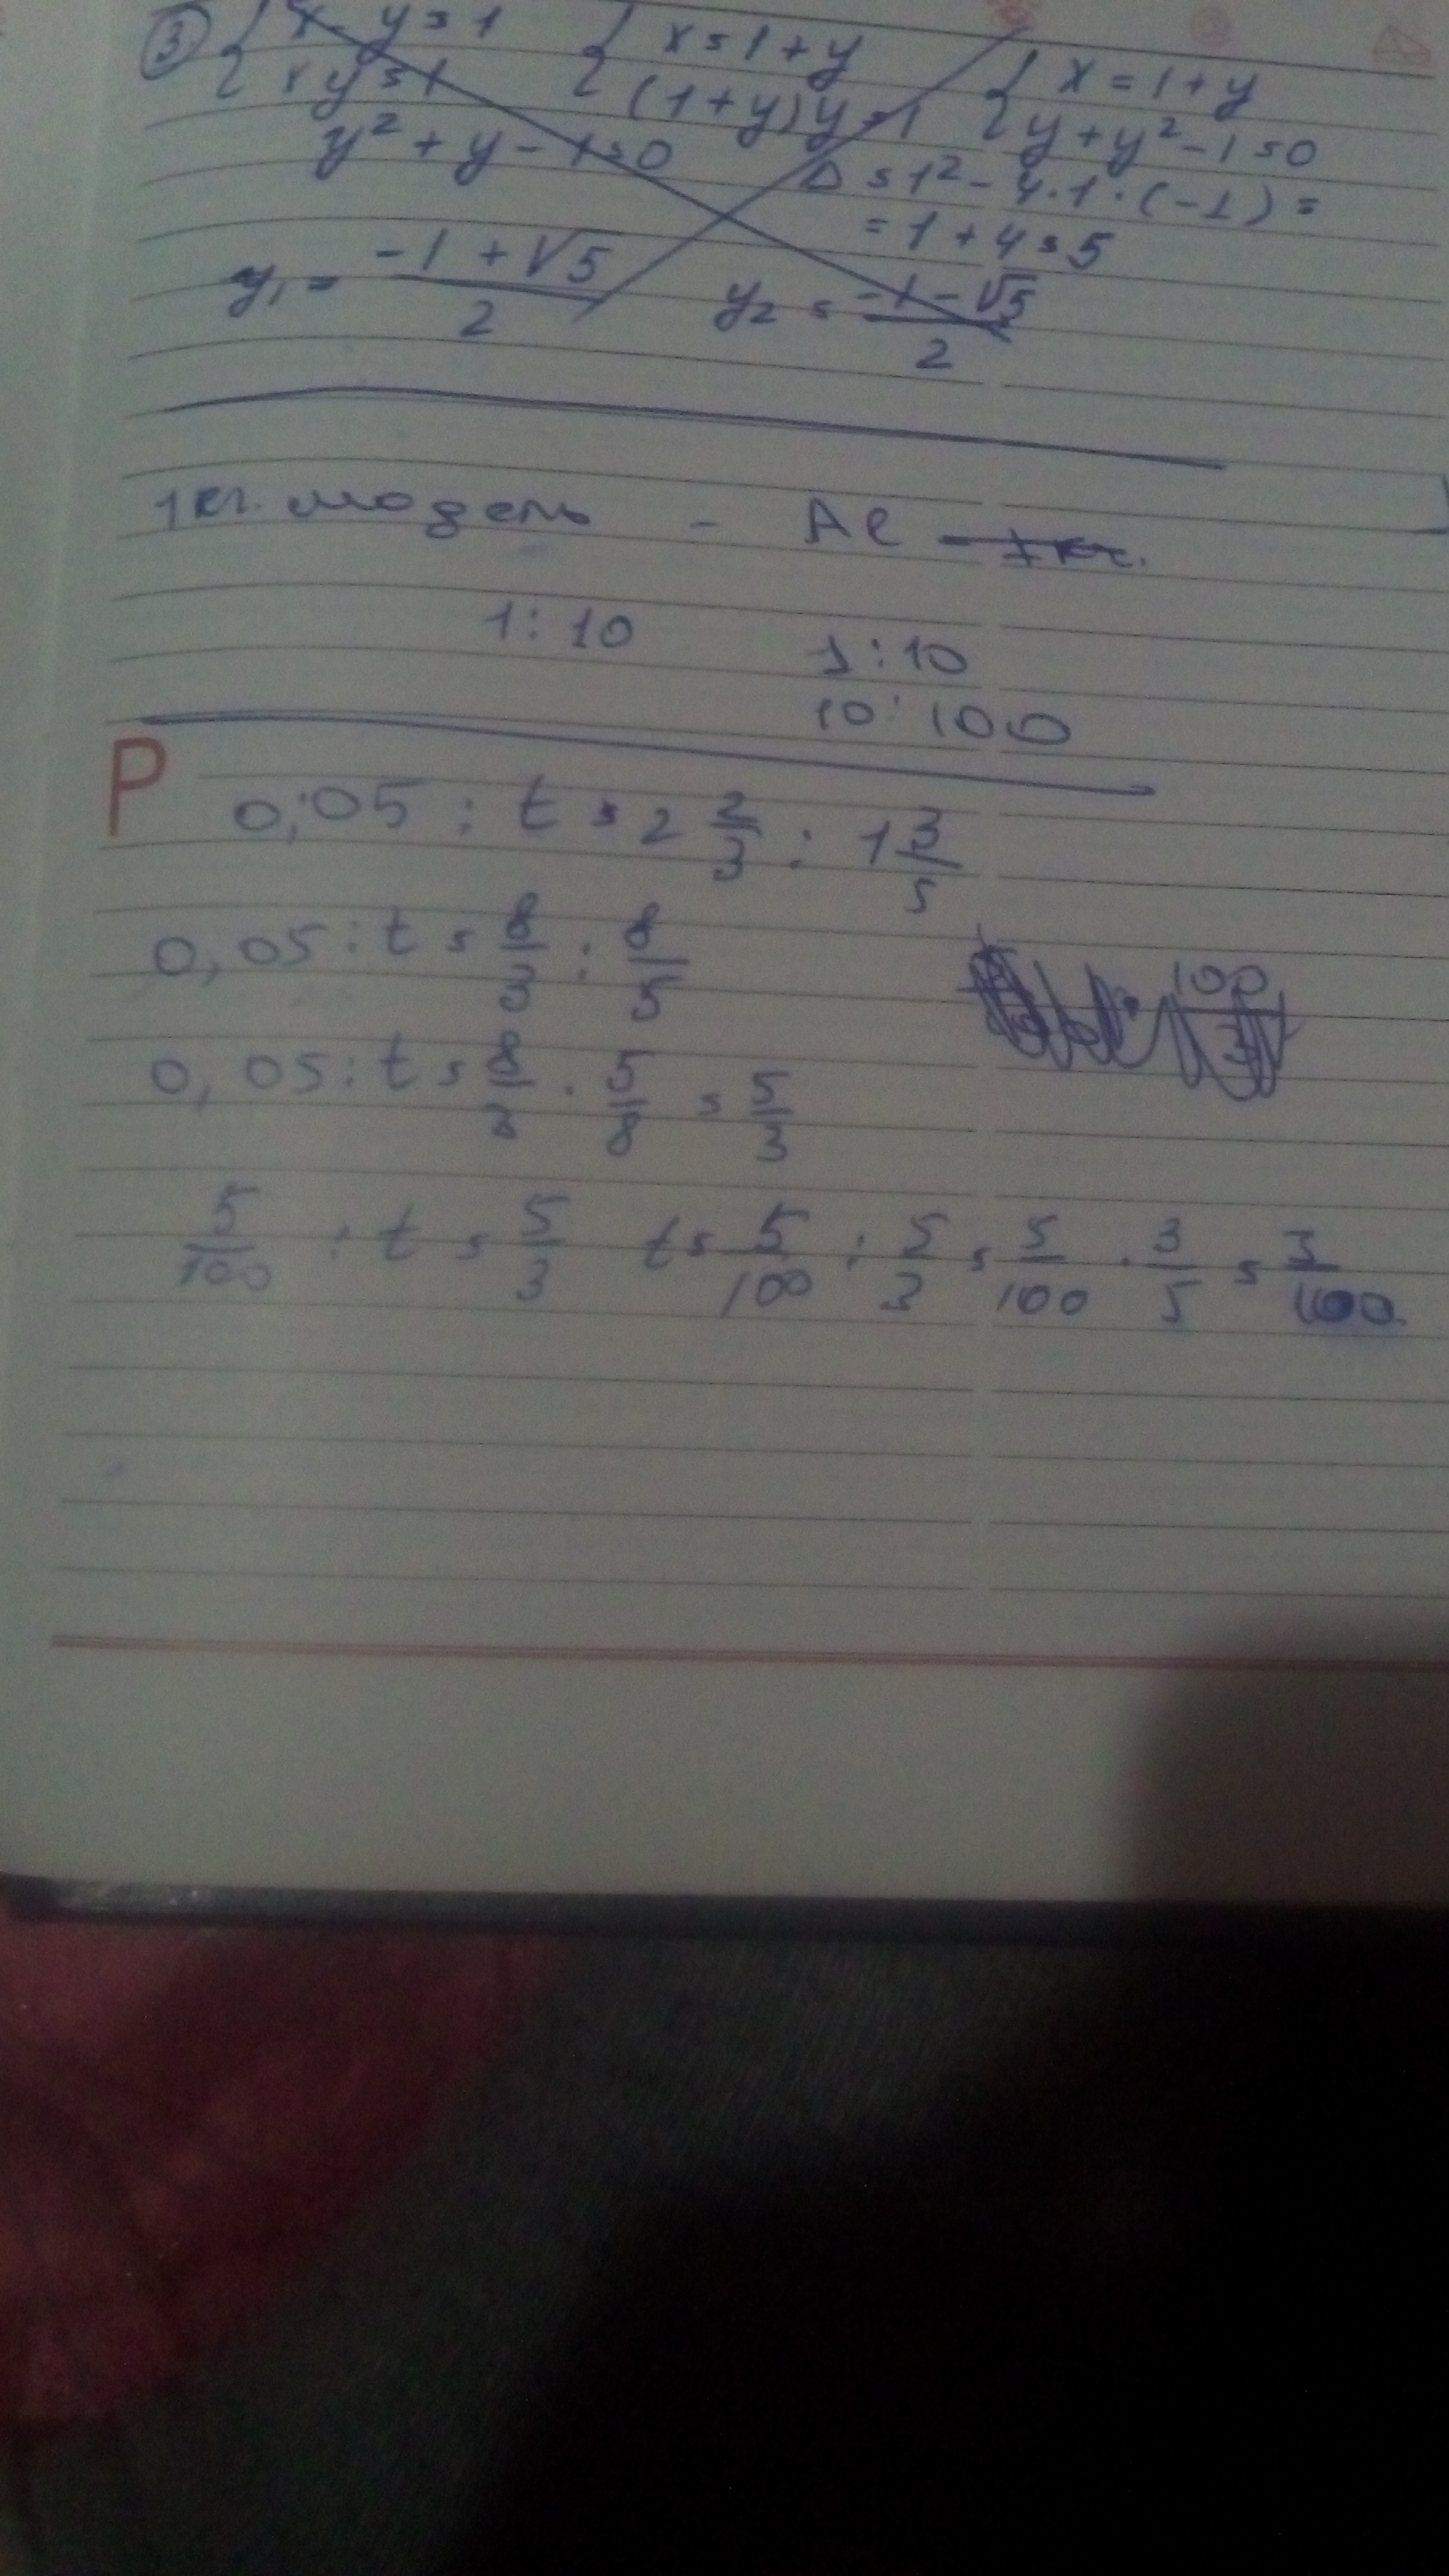 ③ { x - y = 1 { x = 1 + y { x = 1 + y
xy = 1 (1 + y) y = 1 y + y² - 1 = 0
y² + y - 1 = 0 Δ = 1² - 4 · 1 · (-1) =
= 1 + 4 = 5
y₁ = (-1 + √5)/2 y₂ = (-1 - √5)/2
1 кг. модель - Al - 1 кг.
1 : 10 1 : 10
10 : 100
P 0,05 : t = 2 2/3 : 1 3/5
0,05 : t = 8/3 : 8/5
100
0,05 : t = 8/3 · 5/8 = 5/3
5/100 : t = 5/3 t = 5/100 : 5/3 = 5/100 · 3/5 = 3/100.